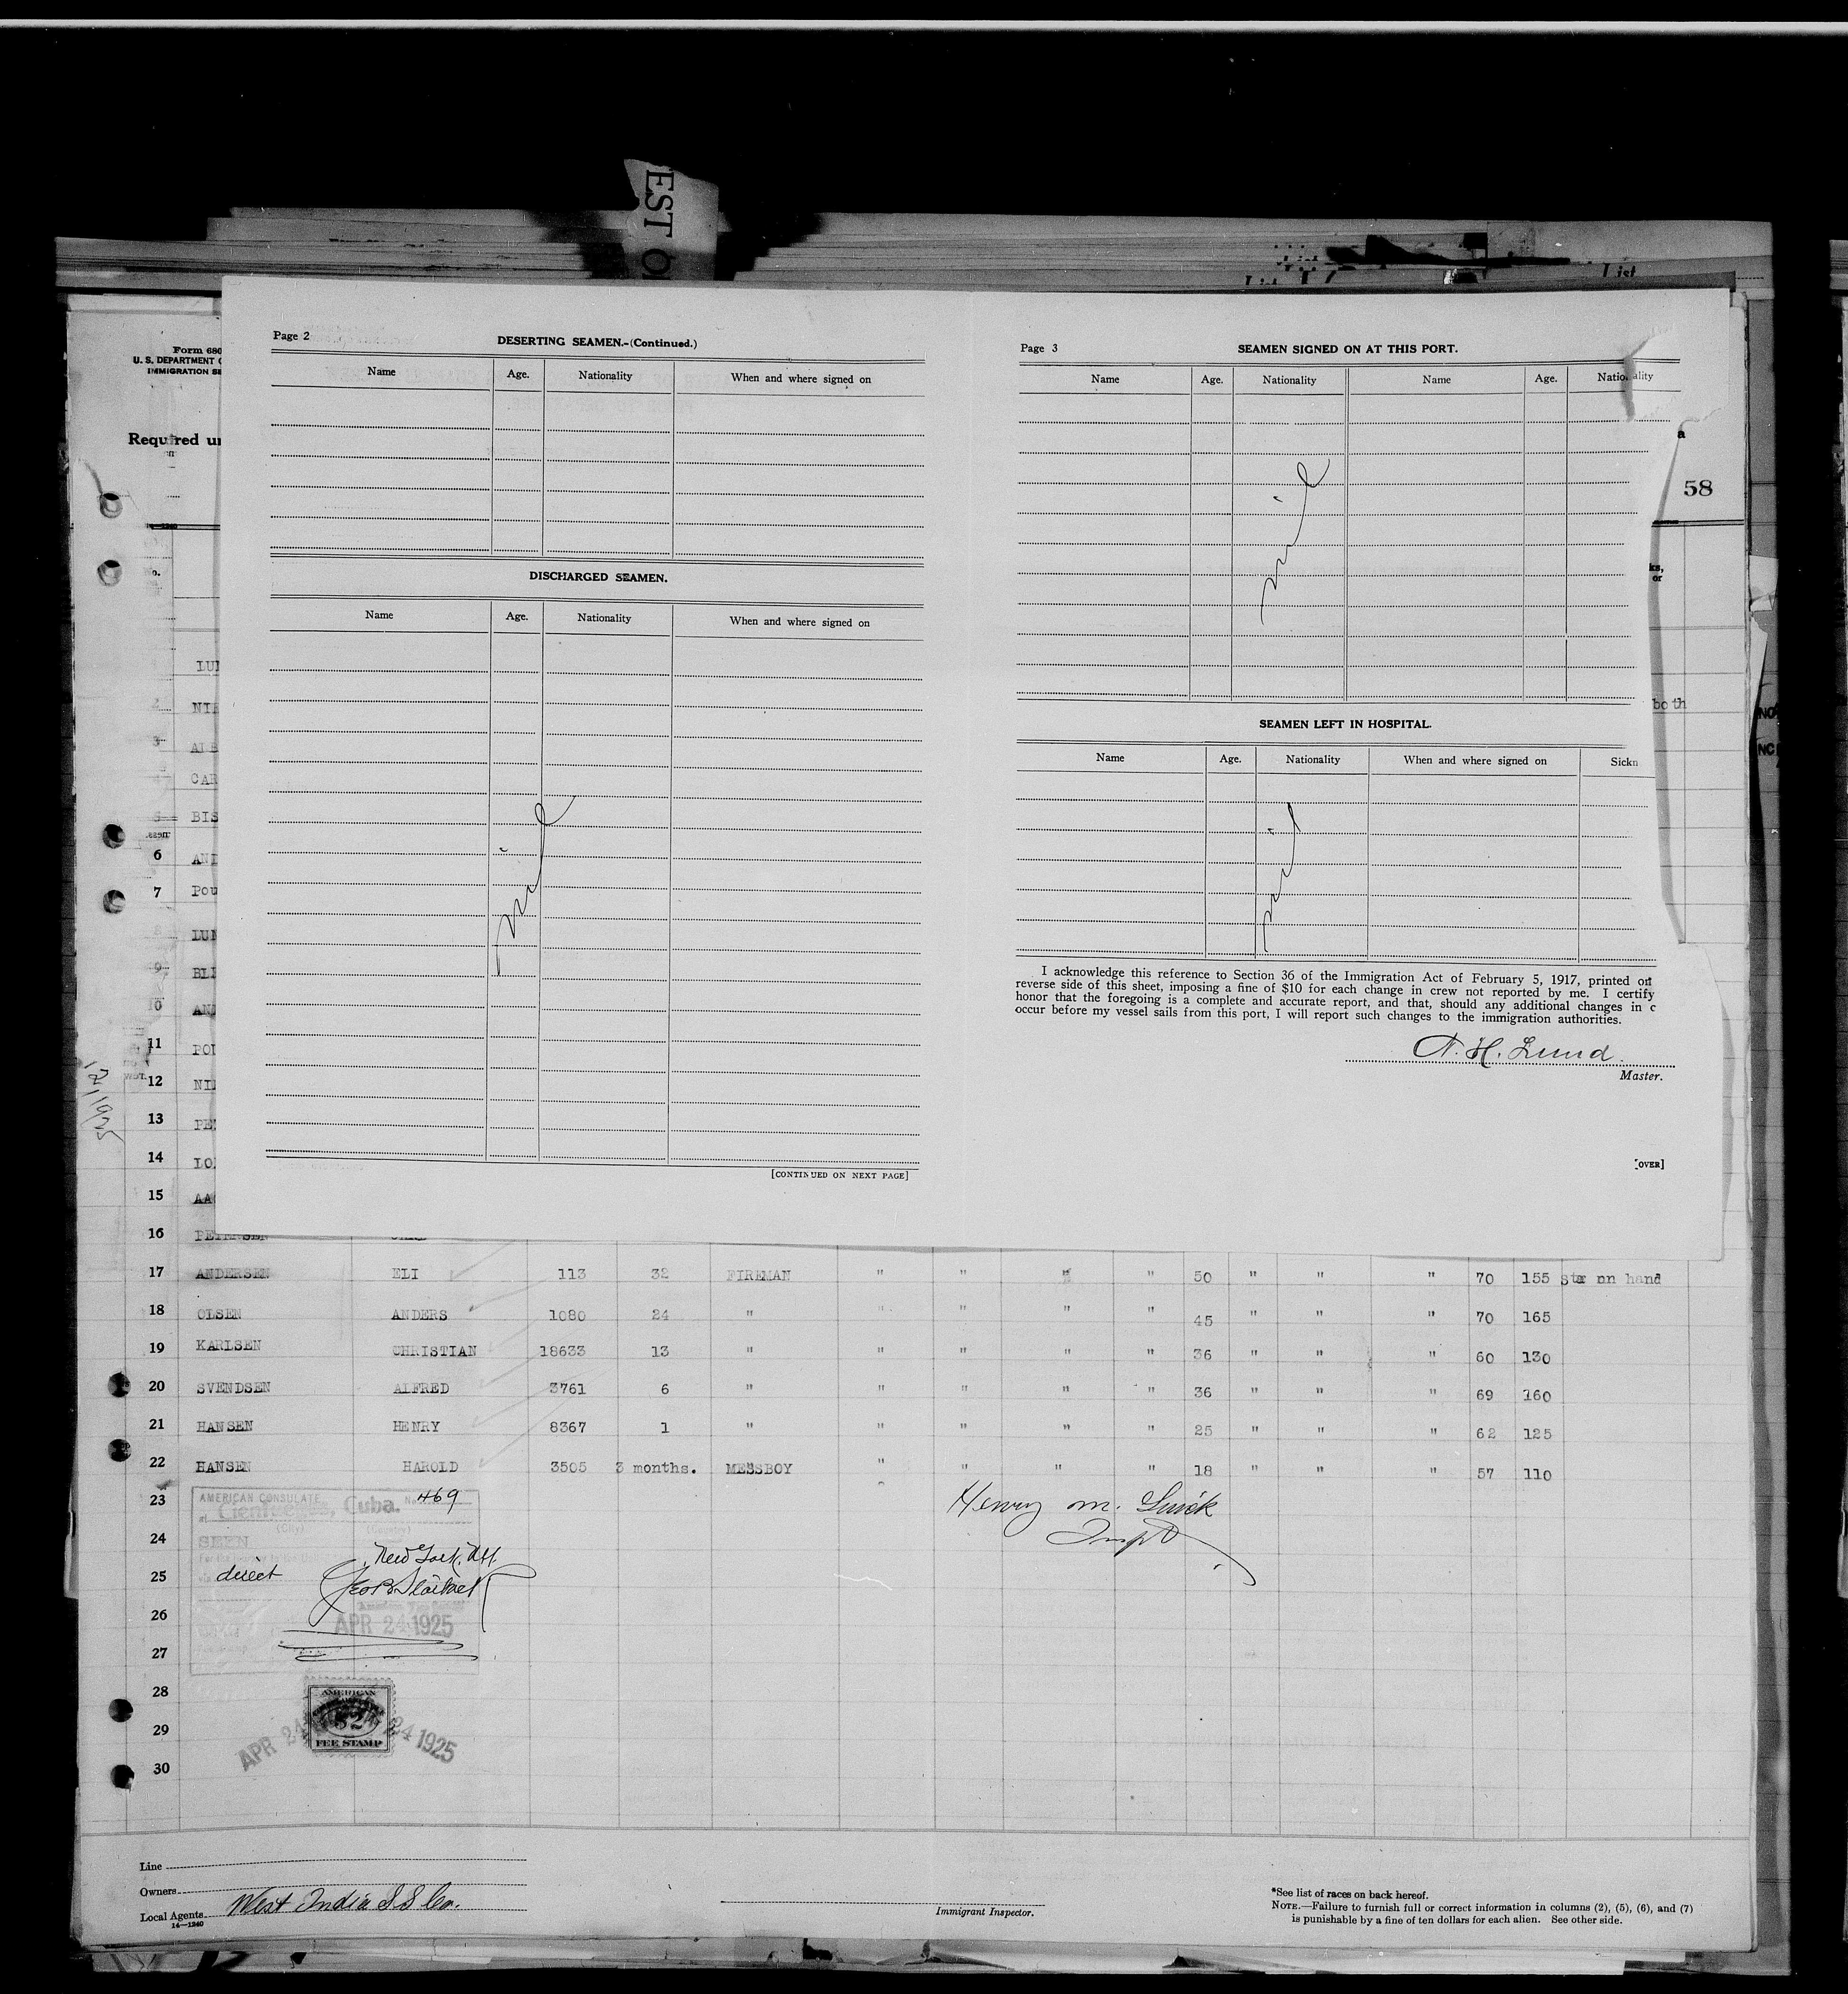 EST
List
Form 680
U. S. DEPARTMENT
IMMIGRATION SE
Required un
a
58
Page 2
DESERTING SEAMEN.-(Continued.)
Name Age. Nationality When and where signed on
DISCHARGED SEAMEN.
Name Age. Nationality When and where signed on
nil
[CONTINUED ON NEXT PAGE]
Page 3
SEAMEN SIGNED ON AT THIS PORT.
Name Age. Nationality Name Age. Nationality
nil
SEAMEN LEFT IN HOSPITAL.
Name Age. Nationality When and where signed on Sickn
nil
I acknowledge this reference to Section 36 of the Immigration Act of February 5, 1917, printed on
reverse side of this sheet, imposing a fine of $10 for each change in crew not reported by me. I certify
honor that the foregoing is a complete and accurate report, and that, should any additional changes in c
occur before my vessel sails from this port, I will report such changes to the immigration authorities.
N. H. Lund.
Master.
[OVER]
ks,
or
both
NO
NC
o.
LUN
2 NIE
3 ALB
CAR
5 BIS
6 AND
7 Pou
8 LUN
9 BLI
10 AND
11 POU
12 NIE
13 PE
14 LO
15 AA
16 PETERSEN
17 ANDERSEN ELI 113 32 FIREMAN " " " " 50 " " " 70 155 on hand
18 OLSEN ANDERS 1080 24 " " " " " 45 " " " 70 165
19 KARLSEN CHRISTIAN 18633 13 " " " " " 36 " " " 60 130
20 SVENDSEN ALFRED 3761 6 " " " " " 36 " " " 69 160
21 HANSEN HENRY 8367 1 " " " " " 25 " " " 62 125
22 HANSEN HAROLD 3505 3 months. MESSBOY " " " " 18 " " " 57 110
23
24
25
26
27
28
29
30
AMERICAN CONSULATE No. 469
at Cienfuegos, Cuba.
(City) (Country)
SEEN
New York, N.Y.
direct
APR 24 1925
AMERICAN
$2
FEE STAMP
APR 24 24 1925
Henry M.
Inspt
Line
Owners
Local Agents West India S S Co.
14-1240
Immigrant Inspector.
*See list of races on back hereof.
NOTE.—Failure to furnish full or correct information in columns (2), (5), (6), and (7)
is punishable by a fine of ten dollars for each alien. See other side.